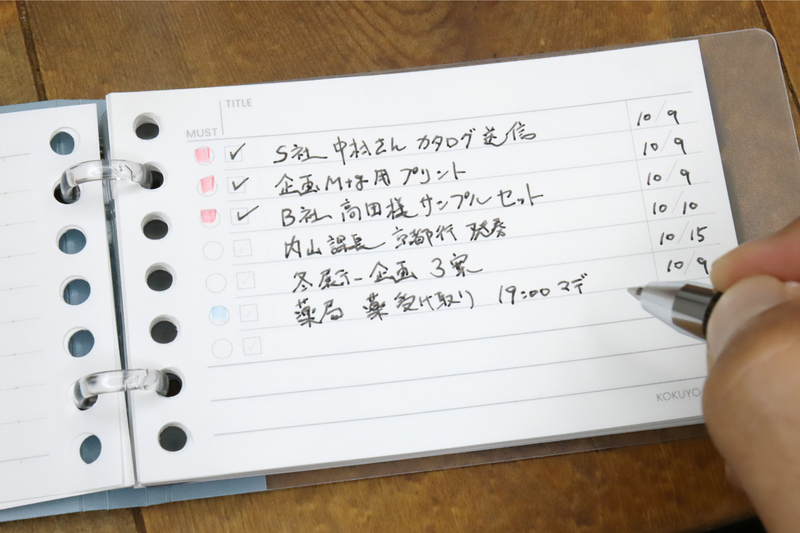 TITLE
MUST
S社 中村さん カタログ送信 10/9
企画Mtg用 プリント 10/9
B社 高田様 サンプルセット 10/9
内山課長 京都行 10/10
冬展示 企画 3案 10/15
薬局 薬 受け取り 19:00マデ 10/9
KOKUYO